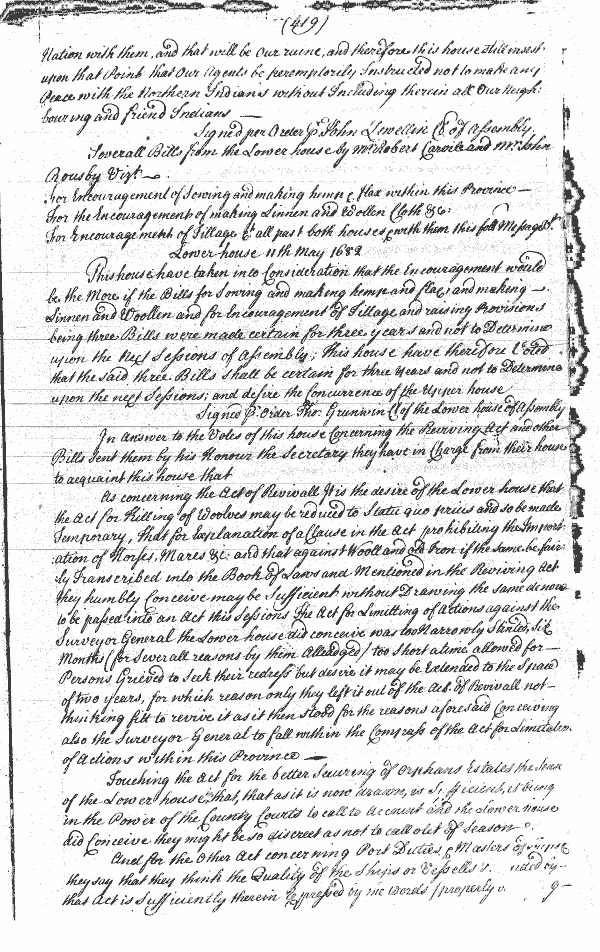 (419)
Nation with them, and that will be our ruine, and therefore this house still insist
upon that Point that Our Agents be peremptorily Instructed not to make any
Peace with the Northern Indians without Including therein all Our Neigh-
bouring and friend Indians —
Signed per Order P John Llewellin Cl of Assembly
Severall Bills from the Lower house by Mr Robert Carvile and Mr John
Rousby Vizt —
For Encouragement of Sowing and making hemp & flax within this Province —
For the Encouragement of making Linnen and Wollen Cloth &c:
For Encouragement of Tillage &c all past both houses & with them this foll Message Vt.
Lower house 11th May 1682
This house have taken into Consideration that the Encouragement would
be the More if the Bills for Sowing and making hemp and flax; and making —
Linnen and Woollen and for Encouragement of Tillage and raising Provisions
being three Bills were made certain for three years and not to Determine
upon the next Sessions of Assembly; this house have therefore Voted
that the said three Bills shall be certain for three Years and not to Determine
upon the next Sessions; and desire the Concurrence of the Upper house
Signed P Order Tho: Grunwin Cl of the Lower house of Assembly
In Answer to the Votes of this house Concerning the Reviving Act and other
Bills sent them by his Honour the Secretary they have in Charge from their house
to acquaint this house that
As concerning the Act of Revivall It is the desire of the Lower house that
the Act for Killing of Woolves may be reduced to Statu quo prius and so be made
Temporary, that for Explanation of a Clause in the Act prohibiting the Import-
ation of Horses, Mares &c: and that against Wooll and old Iron if the same be fair-
ly Transcribed into the Book of Laws and Mentioned in the Reviving Act
they humbly Conceive may be Sufficient without Drawing the same de novo
to be passed into an Act this Sessions The Act for Limitting of Actions against the
Surveyor General the Lower house did conceive was too Narrowly Stinted, Six
Months (for Severall reasons by them Alledged) too Short a time allowed for —
Persons Grieved to Seek their redress but desire it may be Extended to the Space
of two years, for which reason only they left it out of the Act of Revivall not —
thinking fitt to revive it as it then Stood for the reasons aforesaid Conceiving
also the Surveyor General to fall within the Compass of the Act for Limitation
of Actions within this Province —
Touching the Act for the better Securing of Orphans Estates the Sense
of the Lower house is that, that as it is now drawn, is Sufficient, it being
in the Power of the County Courts to call to Account and the Lower house
did Conceive they might be so discreet as not to call out of Season
And for the Other Act concerning Port Duties & Masters of Ships
they say that they think the Quality of the Ships or Vessells
that Act is Sufficiently therein Expressed by the Words properly